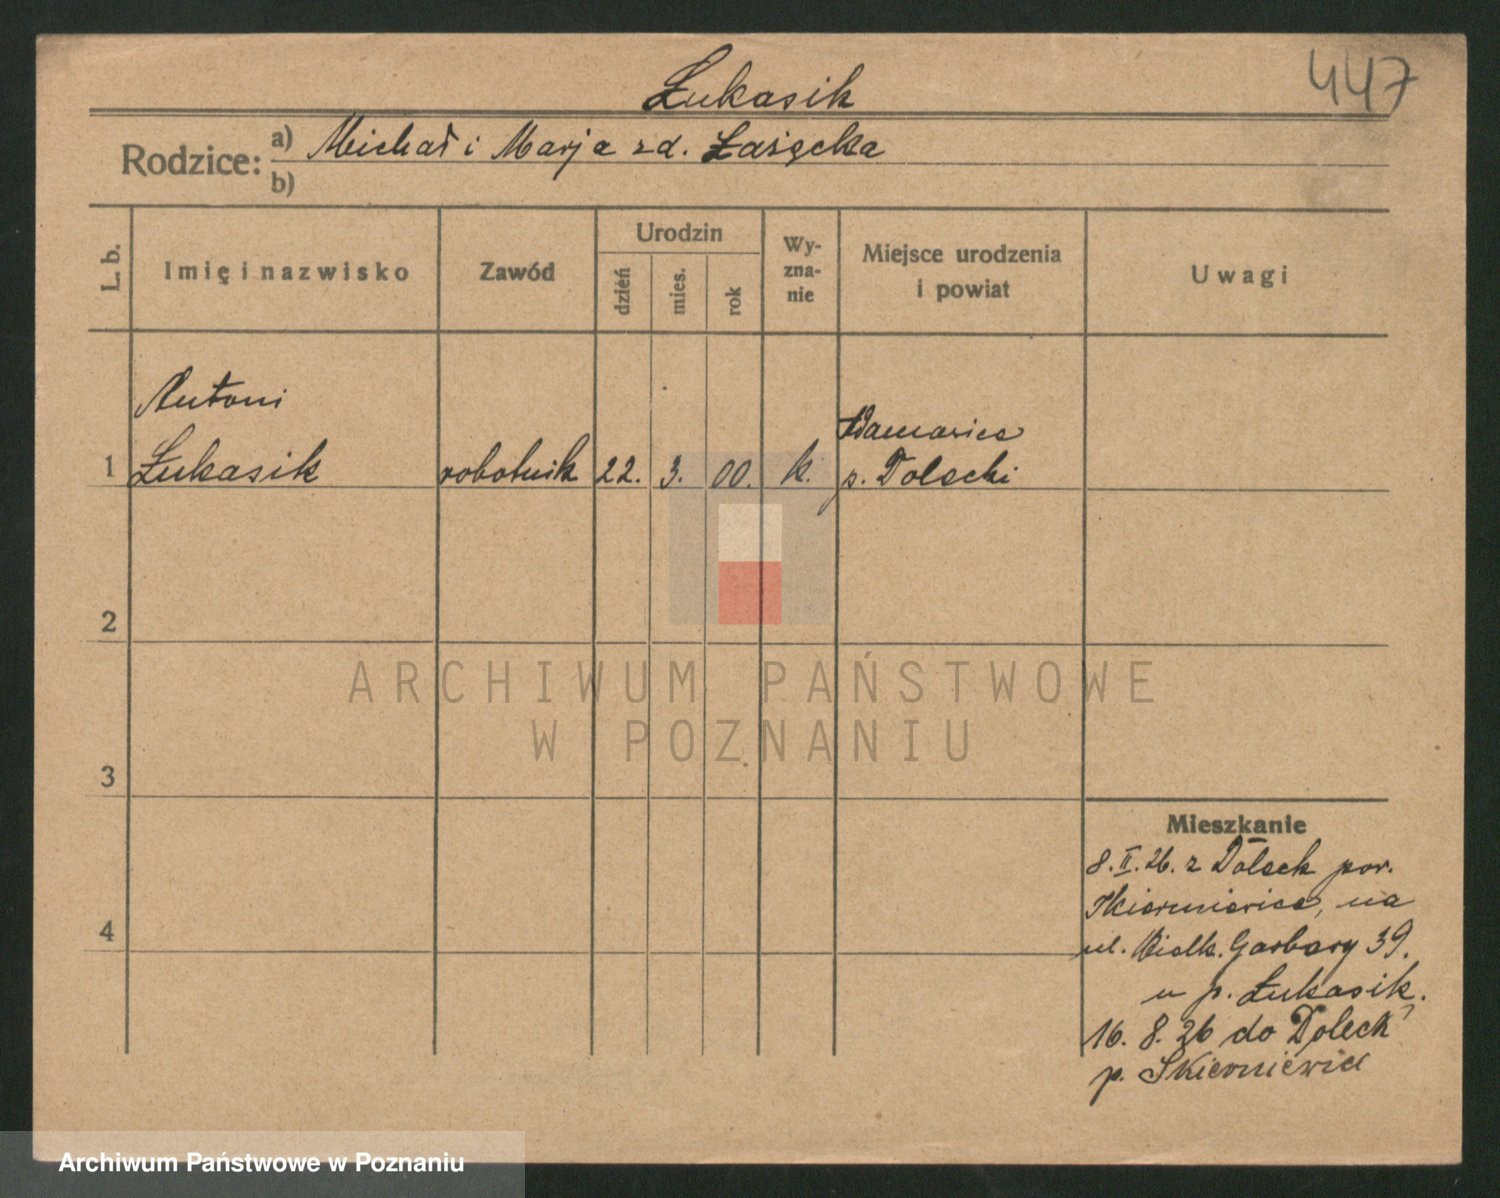 Łukasik
447
Rodzice:
a) Michał i Marja zd. Łażęcka
b)
L. b.
Imię i nazwisko
Zawód
Urodzin
dzień
mies.
rok
Wy-
zna-
nie
Miejsce urodzenia
i powiat
Uwagi
Antoni
1 Łukasik robotnik 22. 3. 00. k. p. Dolecki
2
3
4
Mieszkanie
8.II.26. z Dołeck pow.
Skierniewice, na
ul. Wielk. Garbary 39.
u p. Łukasik.
16. 8. 26 do Doleck
p. Skierniewice
ARCHIWUM PAŃSTWOWE
W POZNANIU
Archiwum Państwowe w Poznaniu